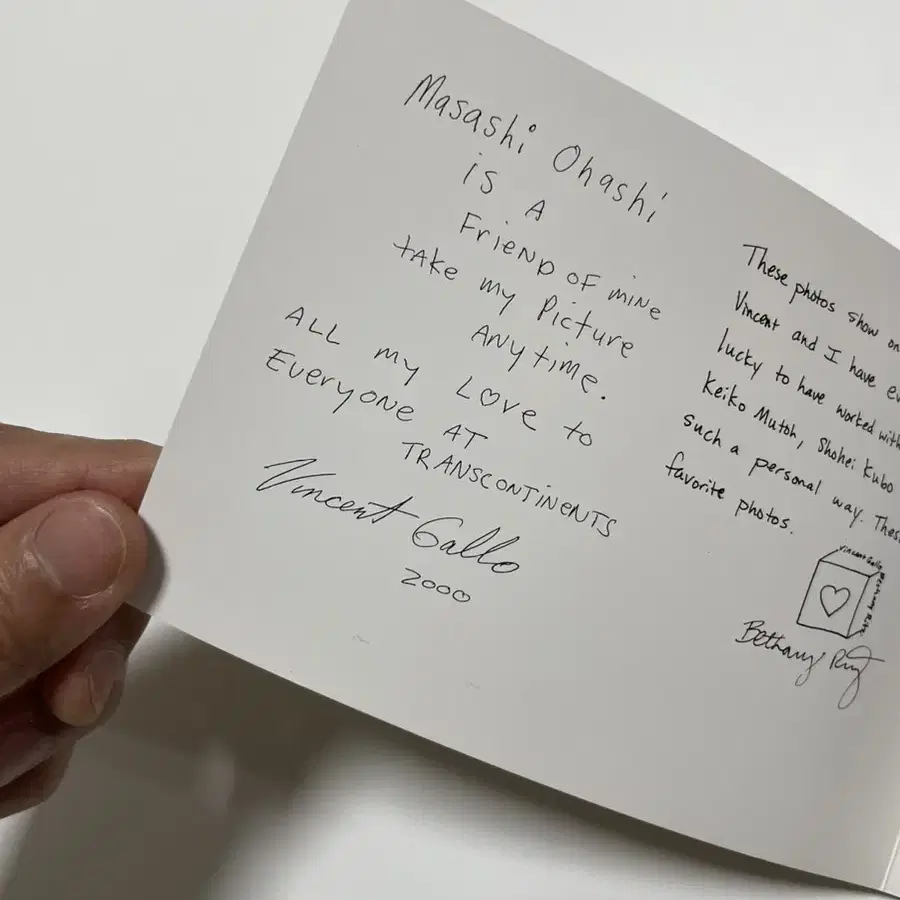 Masashi Ohashi
is A
Friend of mine
take my Picture
Anytime.
ALL my Love to
Everyone AT
TRANSCONTINENTS
Vincent Gallo
2000
These photos show
Vincent and I have
lucky to have worked with
Keiko Mutoh, Shohei Kubo
such a personal way.
favorite photos.
Vincent Gallo
Bethany